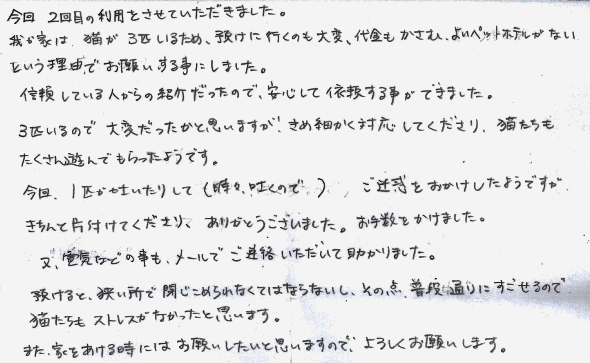 今回 2回目の利用とさせていただきました。
我が家は 猫が 3匹いるため、預けに行くのも大変、代金もかさむ、よいペットホテルがない
という理由でお願いする事にしました。
信頼している人からの紹介だったので、安心して依頼する事ができました。
3匹いるので 大変だったかと思いますが、きめ細かく対応してくださり、猫たちも
たくさん遊んでもらったようです。
今回、1匹が吐いたりして(時々、吐くので)、ご迷惑をおかけしたようですが
きちんと片付けてくださり、ありがとうございました。お手数をかけました。
又、電気などの事も、メールでご連絡いただいて助かりました。
預けると、狭い所で閉じこめられなくてはならないし、その点、普段通りにすごせるので
猫たちも ストレスがなかったと思います。
また、家をあける時にはお願いしたいと思いますので、よろしくお願いします。